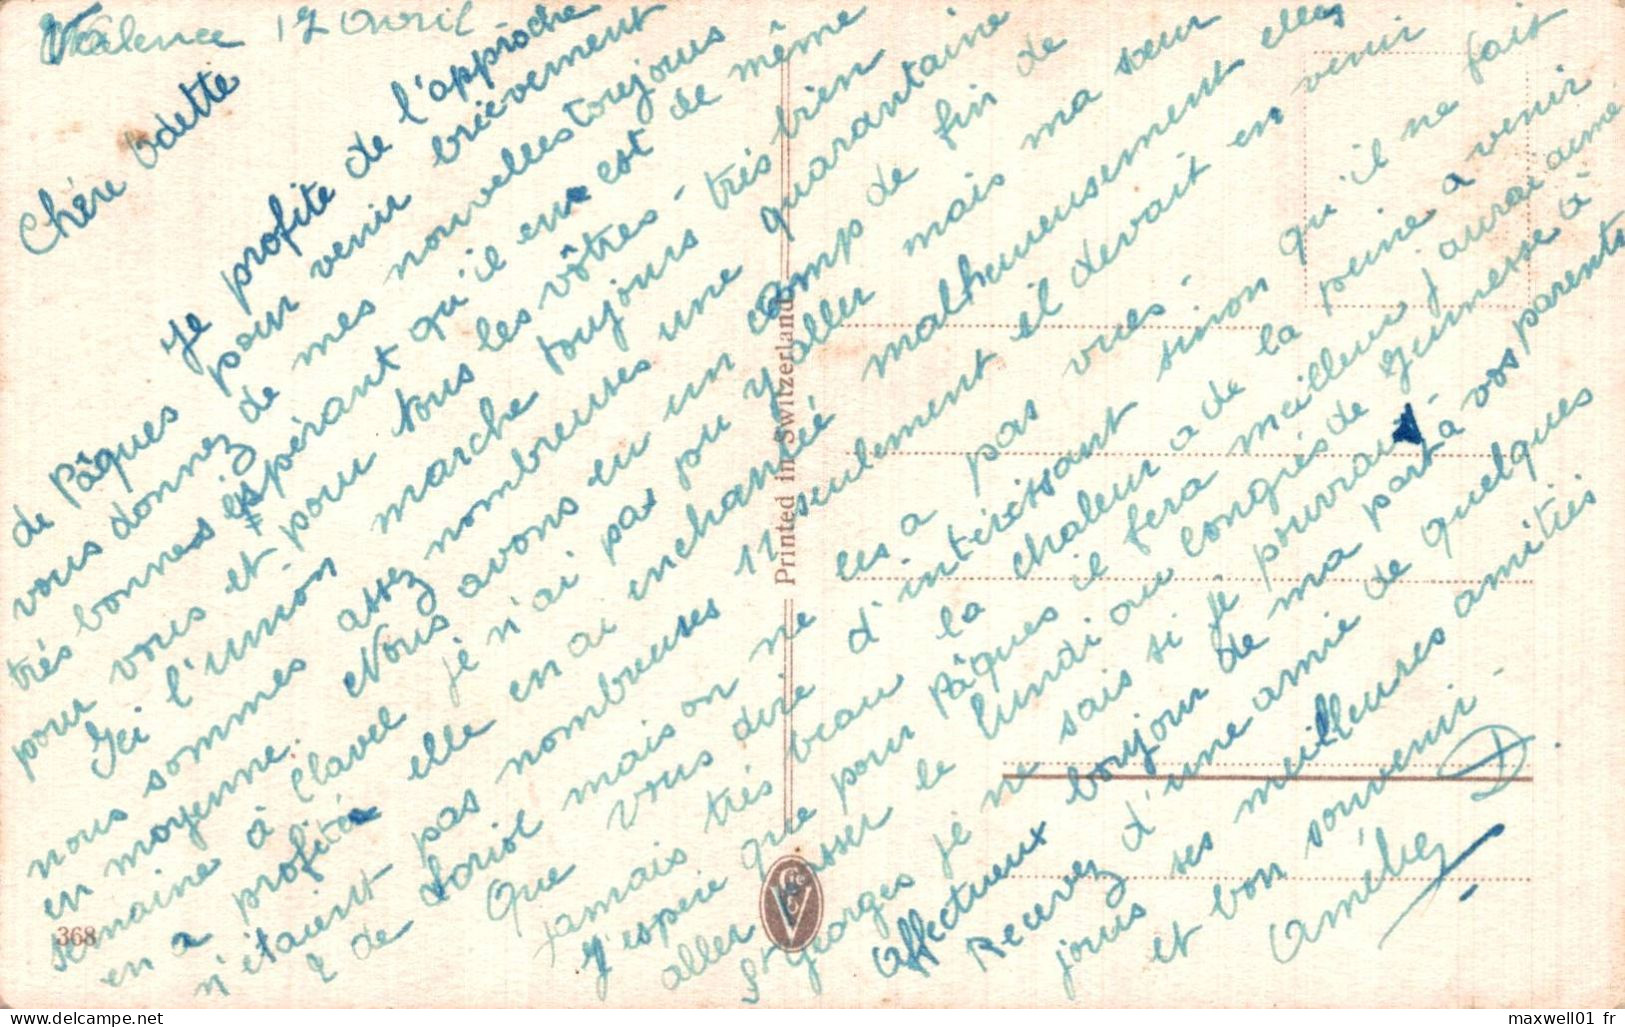 Valence 17 avril
Chère Odette
Je profite de l'approche
de Pâques pour venir brièvement
vous donnez de mes nouvelles toujours
très bonnes espérant qu'il en est de même
pour vous et pour tous les vôtres - très bien
Ici l'union marche toujours
nous sommes assez nombreuses une quarantaine
en moyenne. Nous avons eu un camp de fin de
semaine à Clavel je n'ai pas pu y aller mais ma sœur
en a profité elle en ai enchantée malheureusement elles
n'étaient pas nombreuses 11 seulement il devait en venir
2 de Loriol mais on ne les a pas vues -
Que vous dire d'intéressant sinon qu'il ne fait
jamais très beau la chaleur a de la peine a venir
J'espère que pour Pâques il fera meilleur j'aurai aimé
aller passer le lundi au congrès de jeunesse à
St Georges je ne sais si je pourrai -
Affectueux bonjour de ma part à vos parents
Recevez d'une amie de quelques
jours ses meilleures amitiés
et bon souvenir -
Printed in Switzerland
368
maxwell01 fr